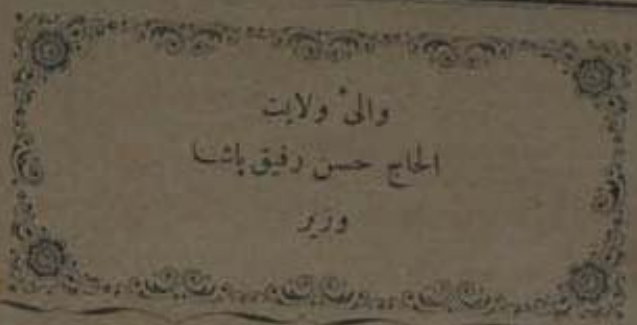 والیٔ ولایت
الحاج حسن رفیق پاشا
وزیر